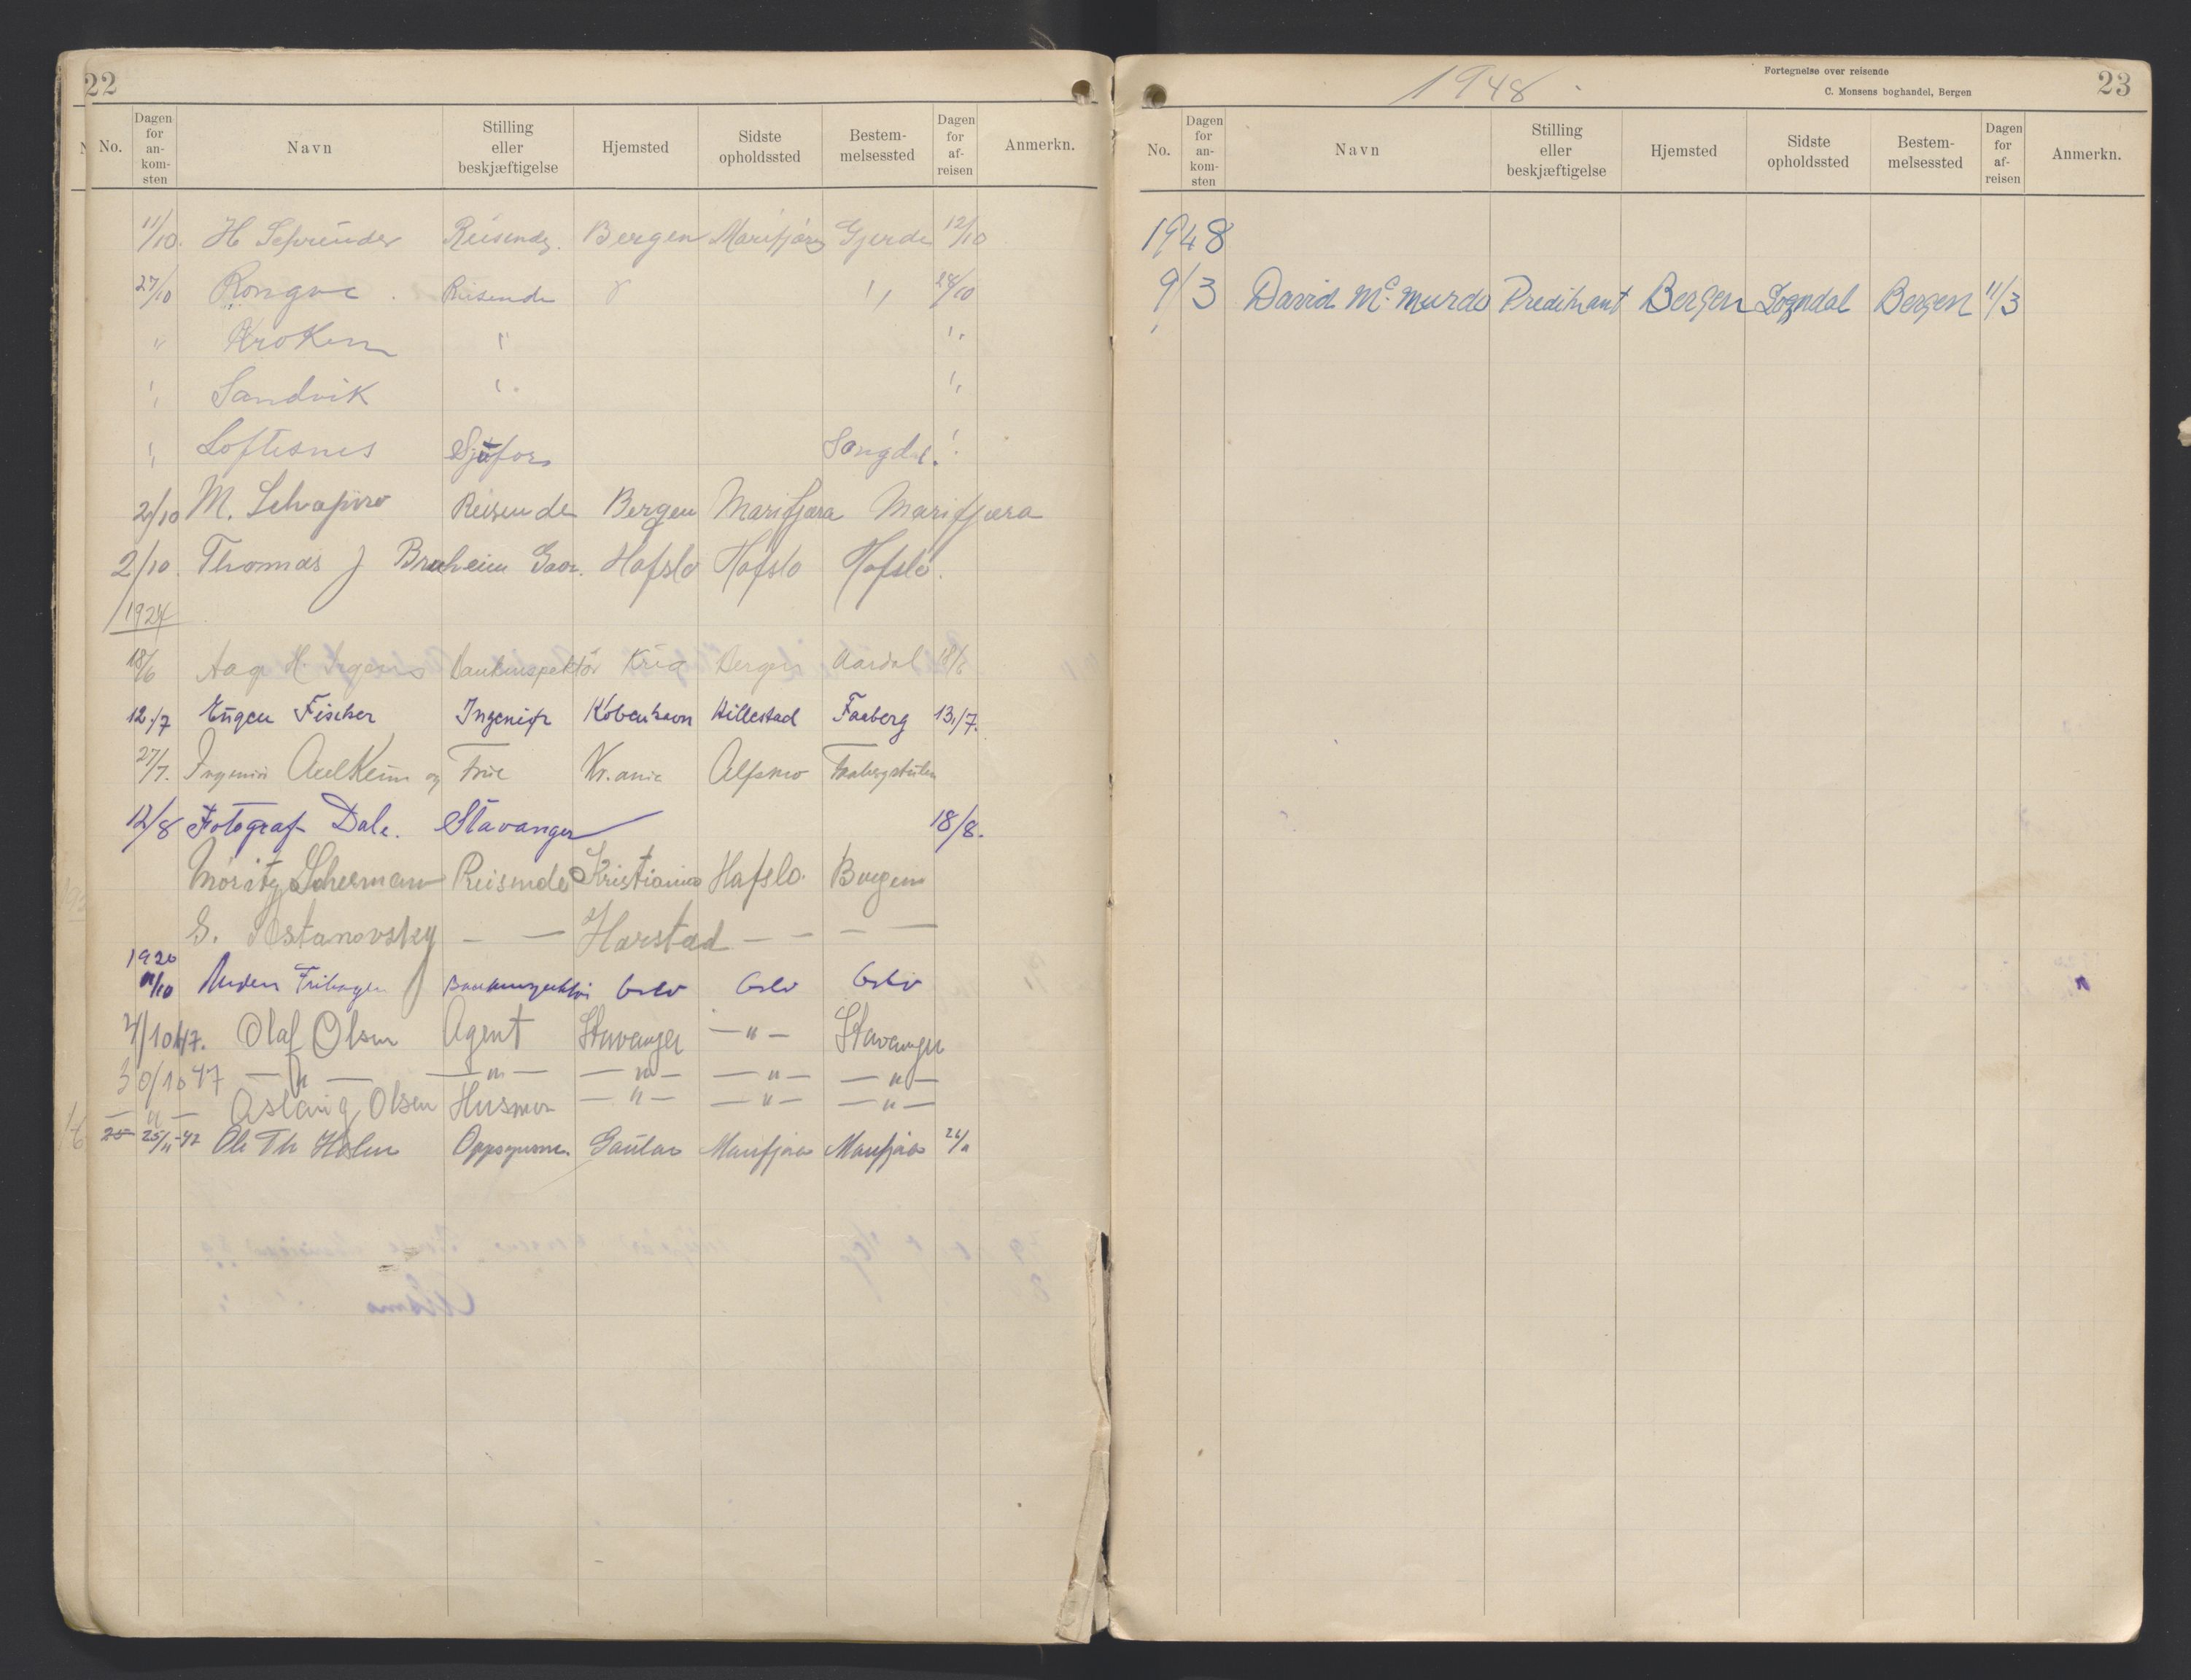 22
No. Dagen for an- kom- sten Navn Stilling eller beskjæftigelse Hjemsted Sidste opholdssted Bestem- melsessted Dagen for af- reisen Anmerkn.
11/10. H Reisende. Bergen Marifjøren Gjerde 12/10
27/10 Rongve. Reisende " 28/10
" Kroken " "
" Sandvik " "
" Loftesnes Sjåfør Songdal. "
2/10 M. Schapiro Reisende Bergen Marifjæra Marifjæra
2/10. Thomas J Bruheim Hafslo Hafslo Hafslo.
1924
18/6 Aage H. Bankinspektør Kria Bergen Aardal 18/6
12/7 Eugen Fischer Ingeniør Köbenhavn Hillestad Faaberg 13/7.
27/7. Ingeniør og Frue Kr.ania
12/8 Fotograf Dale. Stavanger 18/8.
Moritz Scherman Reisende Kristiania Hafslo. Bergen
S. Ostanovsky — — Harstad — — — —
1920
11/10 Bankinspektør Oslo Oslo Oslo
2/10 47. Olaf Olsen Agent Stavanger — " — Stavanger
30/10 47 — " — — " — — " — — " — — " —
— " — Aslaug Olsen Husmor — " — — " — — " —
25 25/11-47 Ole Th Holm Gaular Marifjøra Marifjøra 26/11
1948
Fortegnelse over reisende
C. Monsens boghandel, Bergen
23
No. Dagen for an- kom- sten Navn Stilling eller beskjæftigelse Hjemsted Sidste opholdssted Bestem- melsessted Dagen for af- reisen Anmerkn.
1948
9/3 David Mc. Murdo Predikant Bergen Sogndal Bergen 11/3